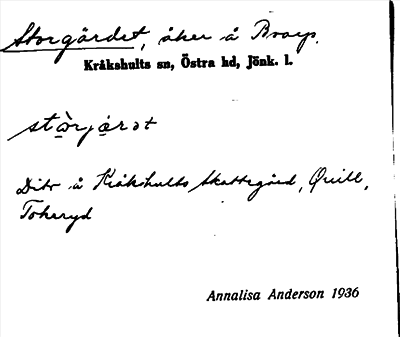 Storgärdet, åker å Broarp.
Kråkshults sn, Östra hd, Jönk. l.
stòrjárdt
Dito å Kråkshults Skattegård, Quill,
Tokaryd
Annalisa Anderson 1936